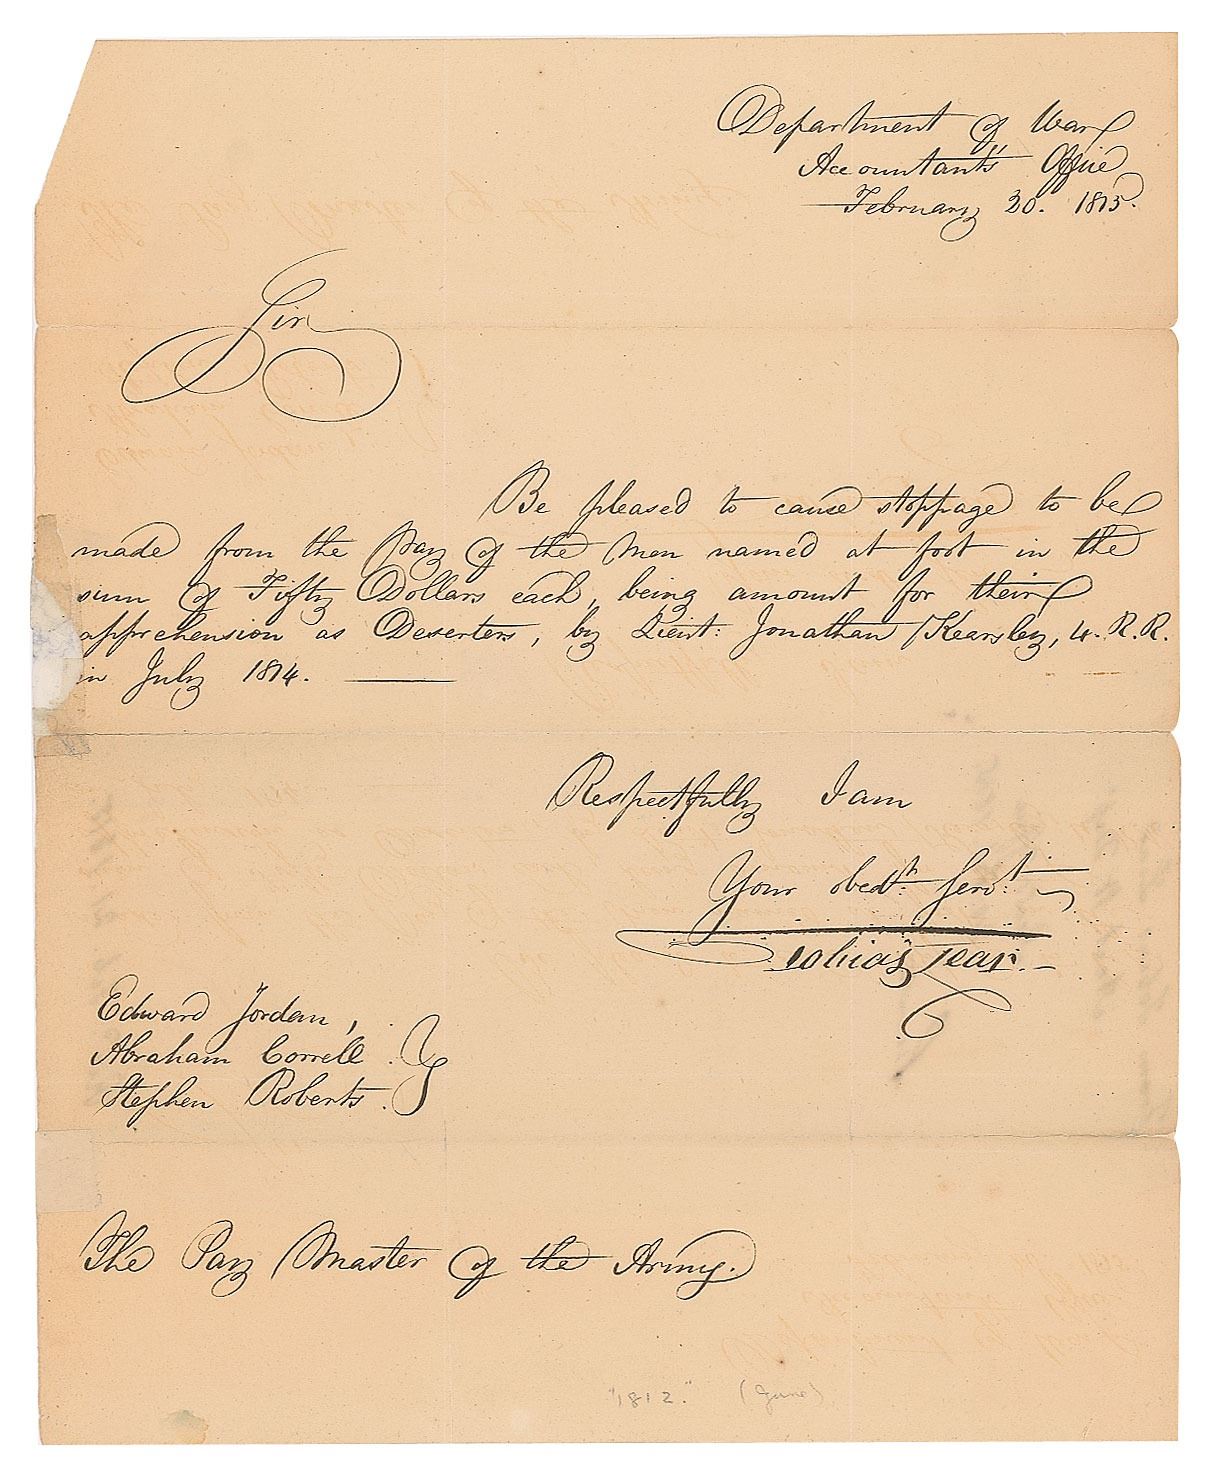 Department of War
Accountant's Office
February 20. 1815.
Sir
Be pleased to cause stoppage to be
made from the Pay of the Men named at foot in the
sum of Fifty Dollars each, being amount for their
apprehension as Deserters, by Lieut: Jonathan Kearsley, 4. R.R.
in July 1814.
Respectfully I am
Your obedt. Servt.
Tobias Lear.
Edward Jordan,
Abraham Correll.
Stephen Roberts.
The Pay Master of the Army.
"1812." (June)